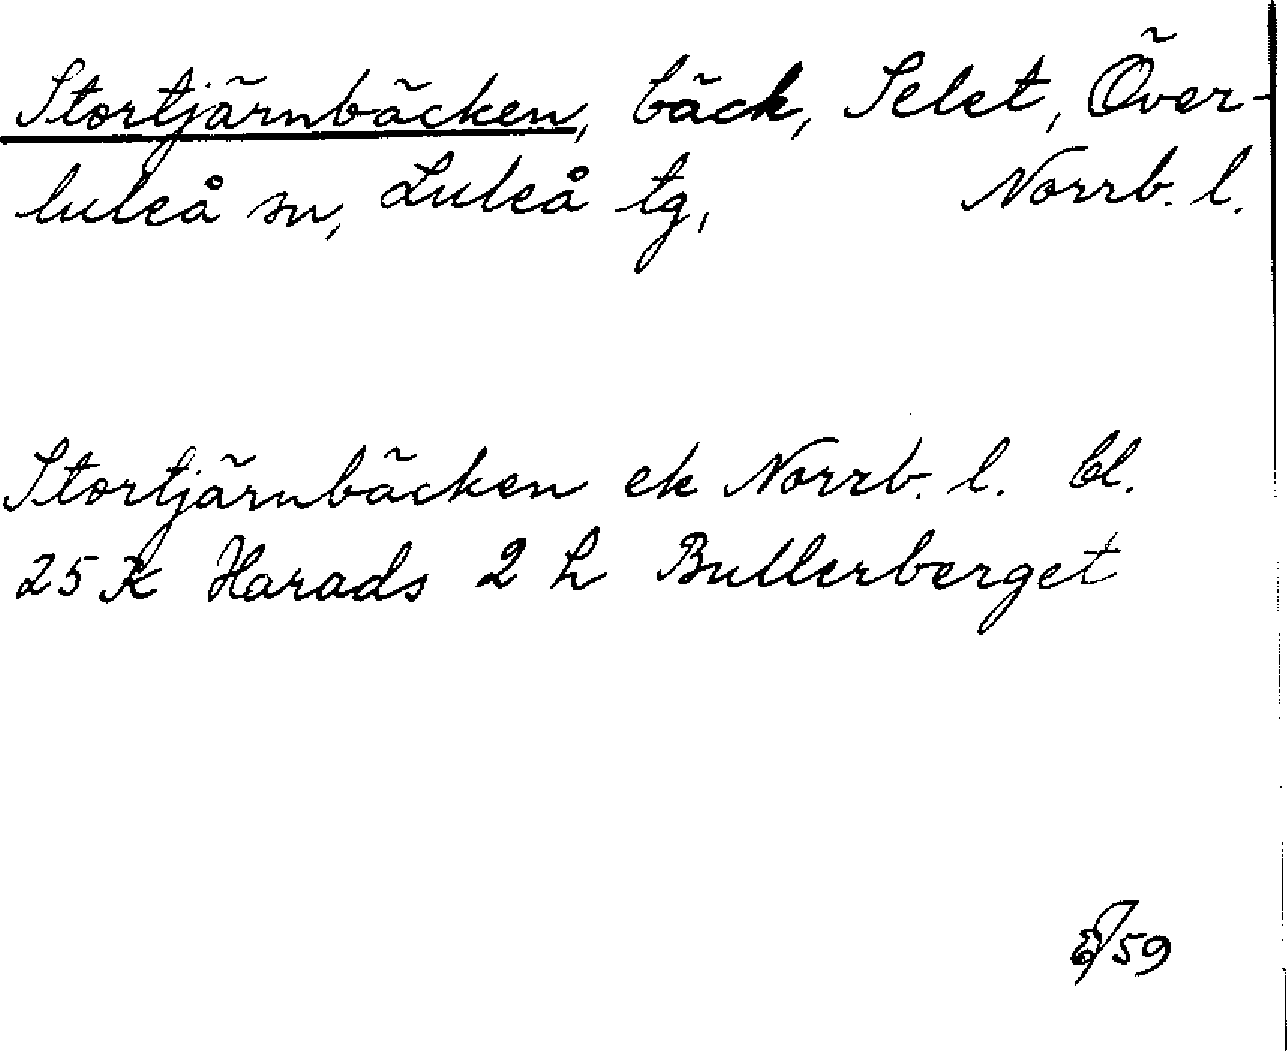 Stortjärnbäcken, bäck, Selet, Över-
luleå sn, Luleå tg, Norrb. l.
Stortjärnbäcken ek Norrb. l. bl.
25 K Harads 2 h Bullerberget
59